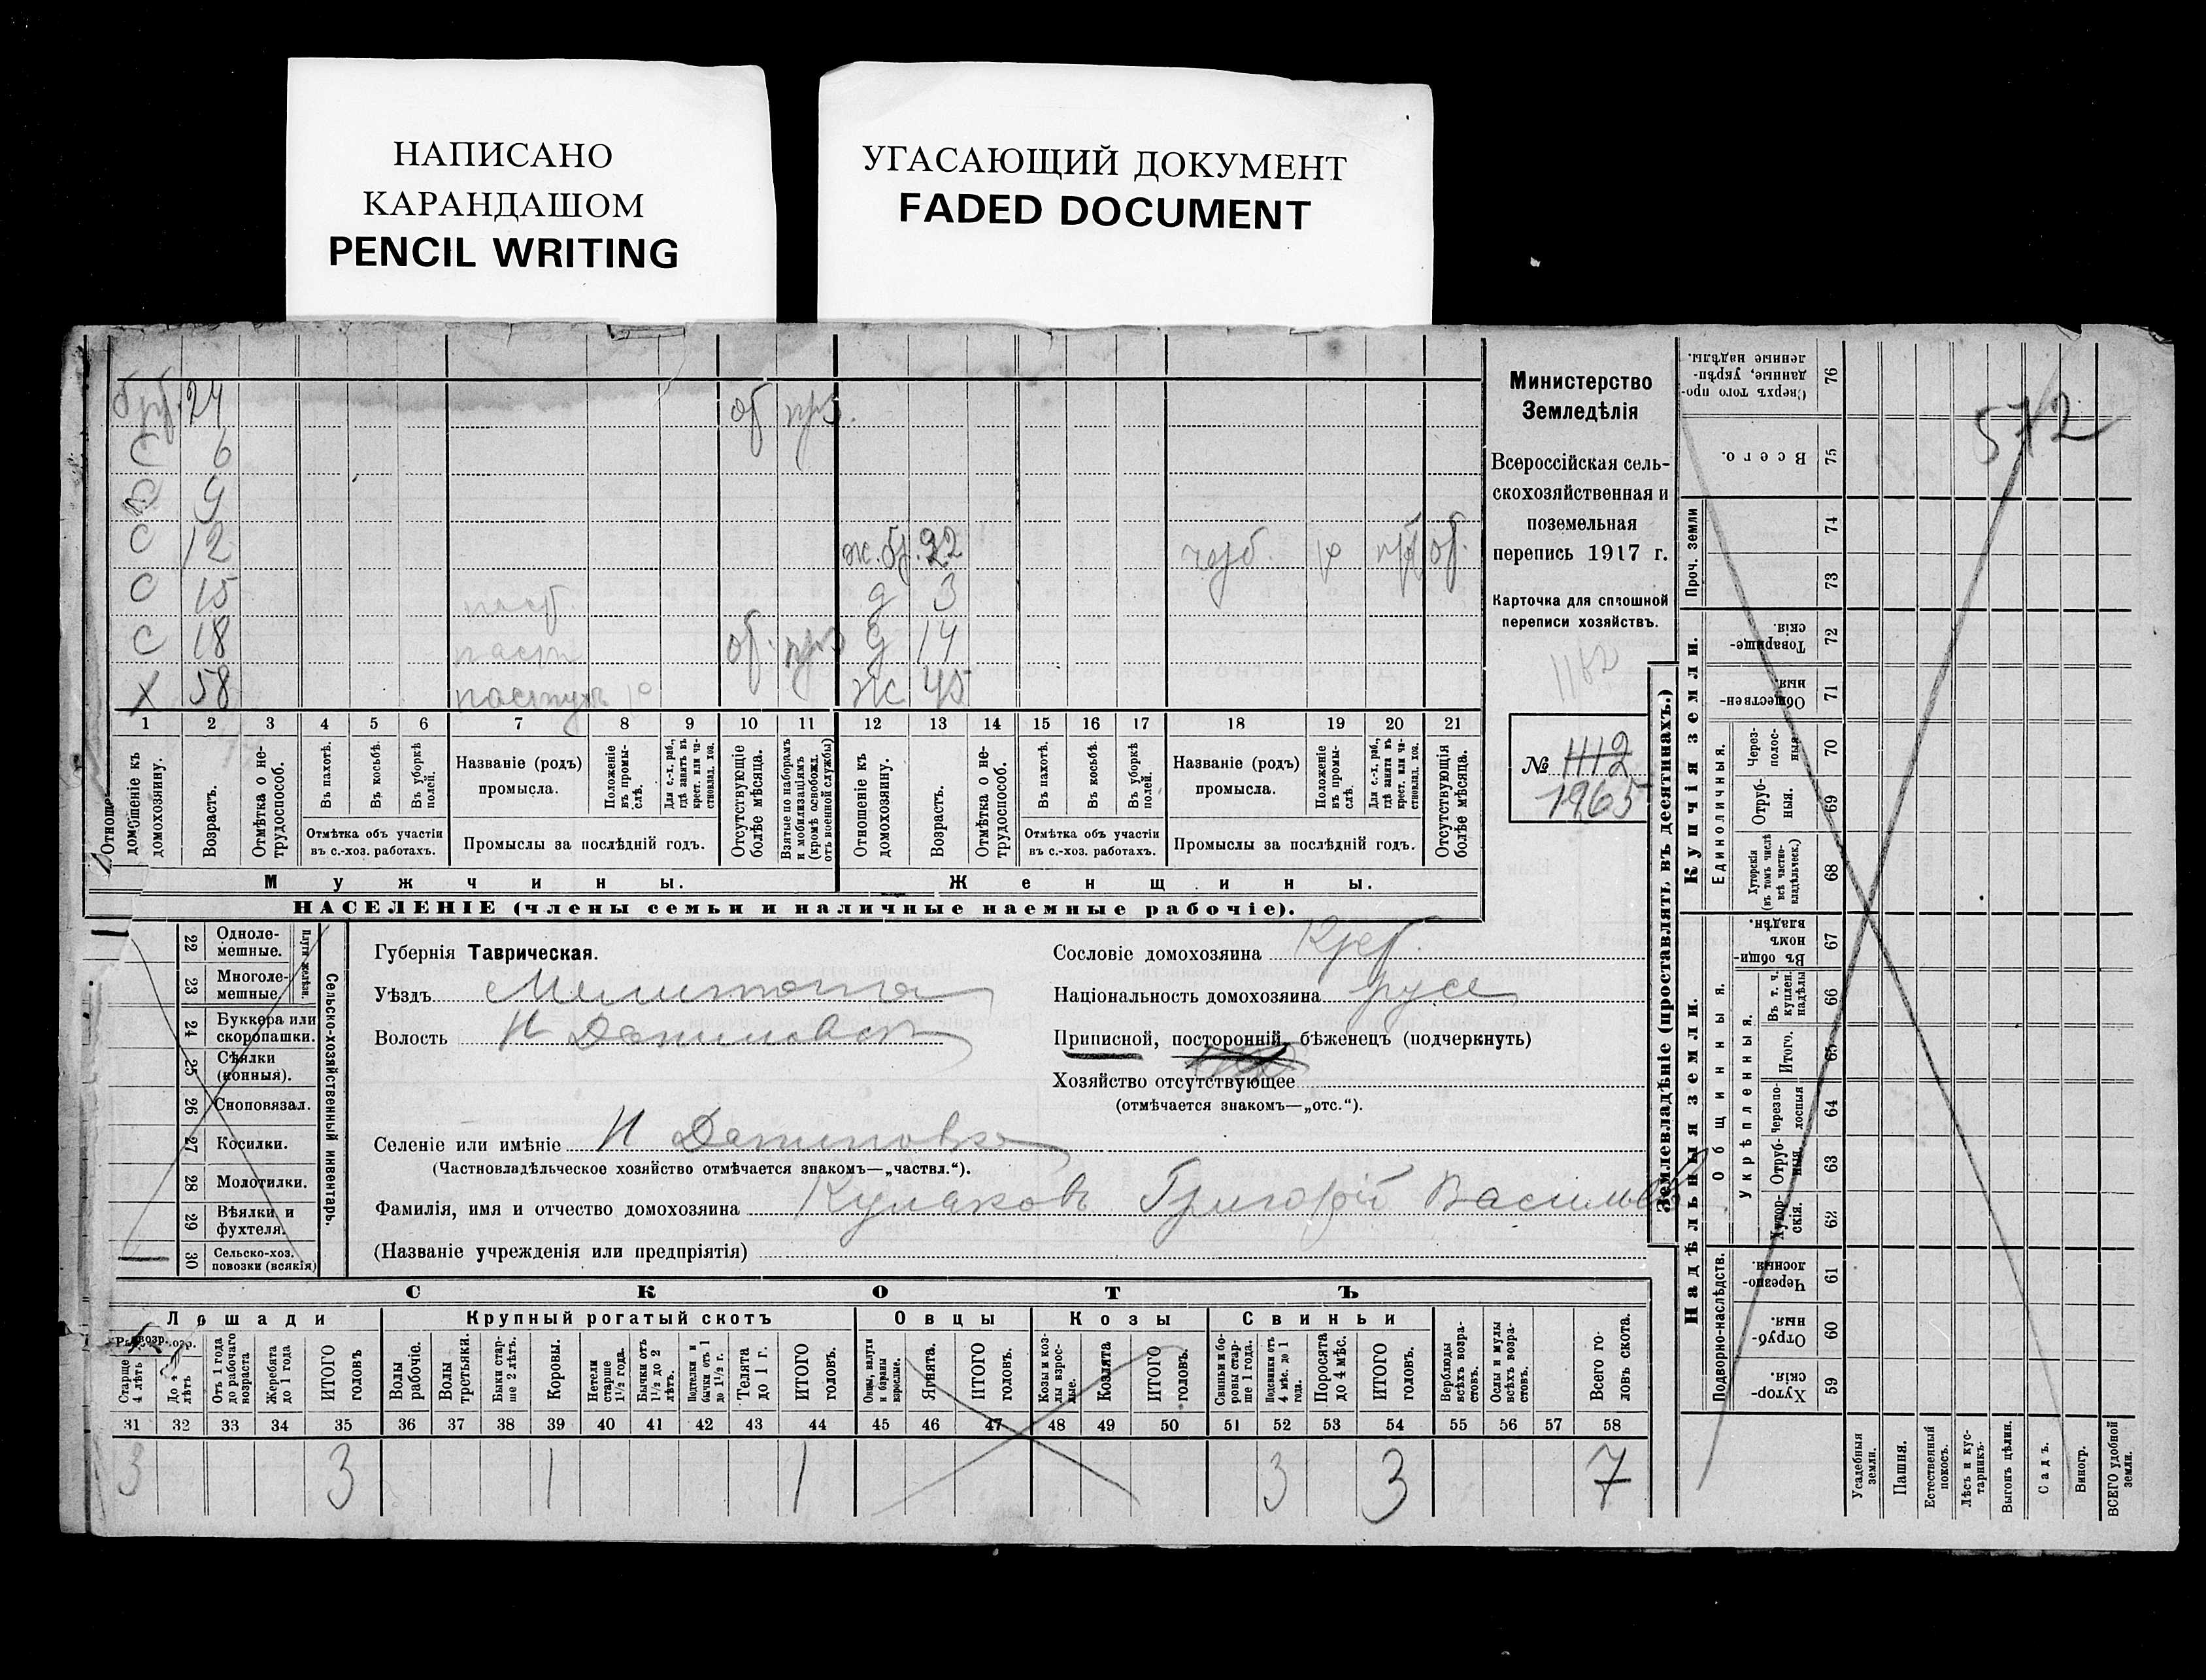 НАПИСАНО
КАРАНДАШОМ
PENCIL WRITING
УГАСАЮЩИЙ ДОКУМЕНТ
FADED DOCUMENT
бр. 24 об
С 6
9
С 12 ж. бр. 22 об.
С 15 д 3
С 18 паст об. д 14
Х 58 пастухъ ж 45
1 2 3 4 5 6 7 8 9 10 11 12 13 14 15 16 17 18 19 20 21
Отношеніе къ домохозяину.
Возрастъ.
Отмѣтка о не-
трудоспособ.
Въ пахотѣ.
Въ косьбѣ.
Въ уборкѣ
полей.
Отмѣтка объ участіи
въ с.-хоз. работахъ.
Названіе (родъ)
промысла.
Положеніе
въ промы-
слѣ.
Для с.-х. раб.,
гдѣ занятъ въ
крест. или ча-
стновлад. хоз.
Промыслы за послѣдній годъ.
Отсутствующіе
болѣе мѣсяца.
Взятые по наборамъ
и мобилизаціямъ
(кромѣ освобожд.
отъ военной службы)
Отношеніе къ
домохозяину.
Возрастъ.
Отмѣтка о не-
трудоспособ.
Въ пахотѣ.
Въ косьбѣ.
Въ уборкѣ
полей.
Отмѣтка объ участіи
въ с.-хоз. работахъ.
Названіе (родъ)
промысла.
Положеніе
въ промы-
слѣ.
Для с.-х. раб.,
гдѣ занята въ
крест. или ча-
стновлад. хоз.
Промыслы за послѣдній годъ.
Отсутствующія
болѣе мѣсяца.
Мужчины.
Женщины.
НАСЕЛЕНІЕ (члены семьи и наличные наемные рабочіе).
Министерство
Земледѣлія
Всероссійская сель-
скохозяйственная и
поземельная
перепись 1917 г.
Карточка для сплошной
переписи хозяйствъ.
1162
№ 1112
1965
22 Одноле-
мешные.
23 Многоле-
мешные.
Плуги желѣзн.
24 Буккера или
скоропашки.
25 Сѣялки
(конныя).
26 Сноповязал.
27 Косилки.
28 Молотилки.
29 Вѣялки и
фухтеля.
30 Сельско-хоз.
повозки (всякія)
Сельско-хозяйственный инвентарь.
Губернія Таврическая.
Уѣздъ Мелитопол
Волость Н Даниловск
Селеніе или имѣніе Н Даниловка
(Частновладѣльческое хозяйство отмѣчается знакомъ—„частвл.“).
Фамилія, имя и отчество домохозяина Кулаковъ Григорій Васильев
(Названіе учрежденія или предпріятія)
Сословіе домохозяина
Національность домохозяина русс
Приписной, посторонній, бѣженецъ (подчеркнуть)
Хозяйство отсутствующее
(отмѣчается знакомъ—„отс.“).
СКОТЪ
Лошади
Крупный рогатый скотъ
Овцы
Козы
Свиньи
Старше
4 лѣтъ
До 4
лѣтъ
Отъ 1 года
до рабочаго
возраста
Жеребята
до 1 года
ИТОГО
головъ
Волы
рабочіе.
Волы
третьяки.
Быки стар-
ше 2 лѣтъ.
Коровы.
Нетели
старше
1½ года.
Бычки отъ
1½ до 2
лѣтъ.
Подтелки и
бычки отъ 1
до 1½ г.
Телята
до 1 г.
ИТОГО
головъ.
Овцы, валухи
и бараны
взрослые.
Ягнята.
ИТОГО
головъ.
Козы и коз-
лы взрос-
лые.
Козлята
ИТОГО
головъ.
Свиньи и бо-
ровы стар-
ше 1 года.
Подсвинки отъ
4 мѣс. до 1
года.
Поросята
до 4 мѣс.
ИТОГО
головъ.
Верблюды
всѣхъ возра-
стовъ.
Ослы и мулы
всѣхъ возра-
стовъ.
Всего го-
ловъ скота.
31 32 33 34 35 36 37 38 39 40 41 42 43 44 45 46 47 48 49 50 51 52 53 54 55 56 57 58
3 3 1 1 3 3 7
572
Землевладѣніе (проставлять въ десятинахъ.)
Надѣльныя земли.
Купчія земли.
Проч. земли
Сверхъ того про-
данные, укрѣп-
ленные надѣлы.
76
Всего.
75
74
73
Товарище-
скія.
72
Обществен-
ныя.
71
Единоличныя.
Через-
полос-
ныя
70
Отруб-
ныя.
69
Хуторскія
(въ томъ числѣ
всѣ частно-
владѣльческ.)
68
Общинныя.
Въ общин-
номъ
владѣн.
67
Укрѣпленныя.
Въ т. ч.
куплен.
надѣлы
66
Итого.
65
Черезпо-
лосныя
64
Отруб-
ныя
63
Хутор-
скія.
62
Подворно-наслѣдств.
Черезпо-
лосныя.
61
Отруб-
ныя.
60
Хутор-
скія.
59
Усадебныя
земли.
Пашня.
Естественный
покосъ.
Лѣсъ и кус-
тарникъ.
Выгонъ цѣлин.
Садъ.
Виногр.
ВСЕГО удобной
земли.